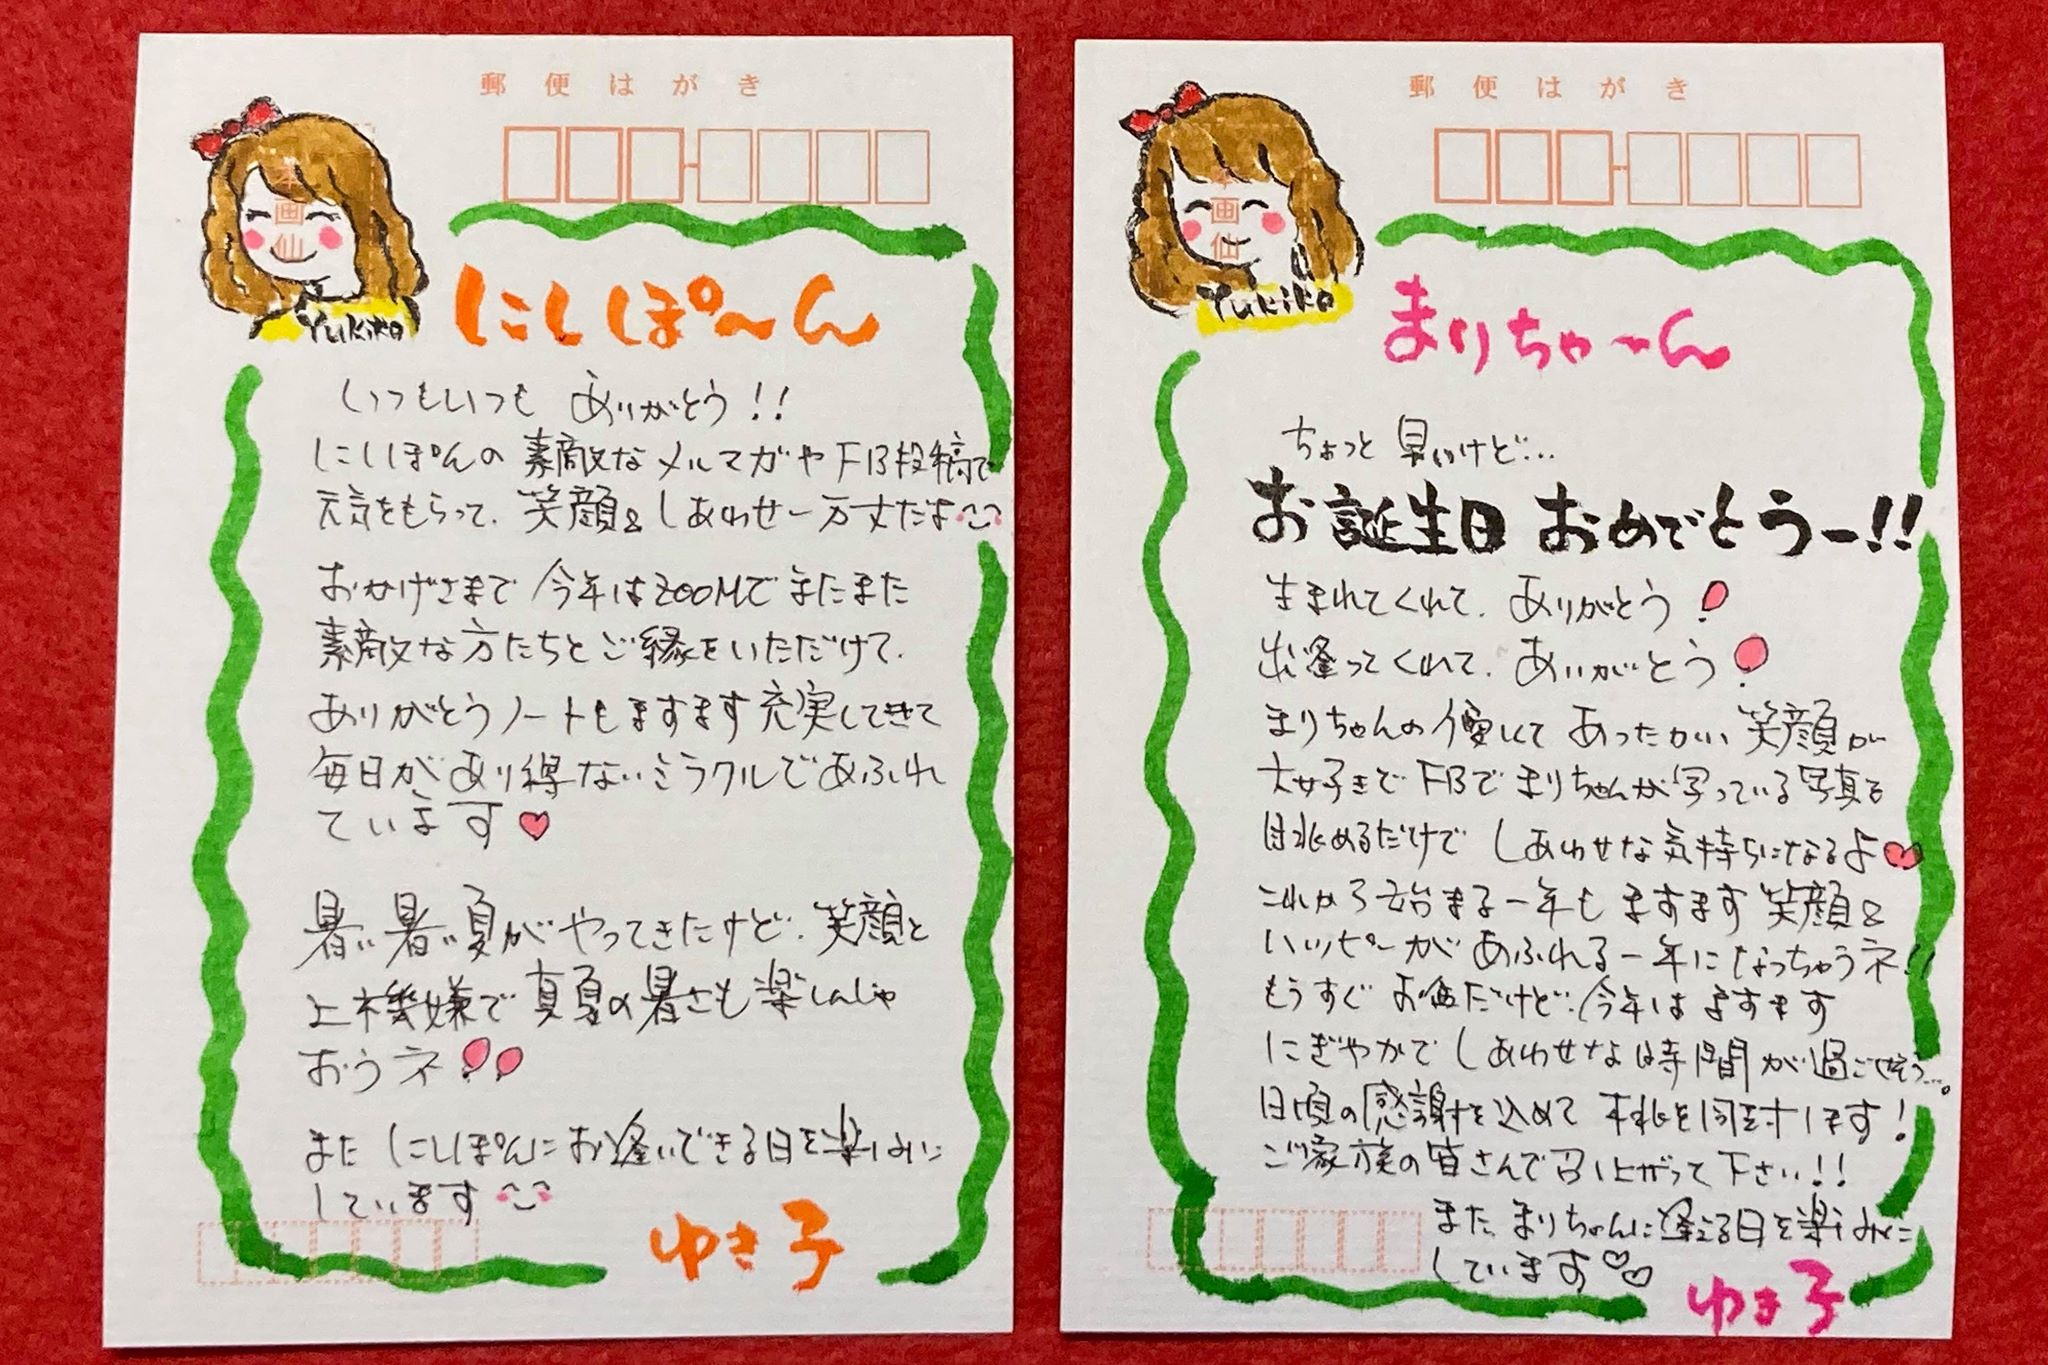 郵便はがき
本画仙
Yukiko
にしぽ〜ん
いつもいつも ありがとう!!
にしぽんの素敵なメルマガやFB投稿で
元気をもらって、笑顔&しあわせ一万丈だよ
おかげさまで今年はZOOMでまたまた
素敵な方たちとご縁をいただけて、
ありがとうノートもますます充実してきて
毎日があり得ないミラクルであふれ
ています♡
暑い暑い夏がやってきたけど、笑顔と
上機嫌で真夏の暑さも楽しんじゃ
おうネ!!
また にしぽんにお逢いできる日を楽しみに
しています
ゆき子
郵便はがき
本画仙
Yukiko
まりちゃ〜ん
ちょっと早いけど…
お誕生日 おめでとうー!!
生まれてくれて、ありがとう!
出逢ってくれて、ありがとう!
まりちゃんの優しくて あったかい 笑顔が
大好きで FBで まりちゃんが写っている写真を
眺めるだけで しあわせな気持ちになるよ♡
これから始まる一年も ますます 笑顔&
ハッピーが あふれる一年に なっちゃうネ!!
もうすぐ お盆だけど、今年は ますます
にぎやかで しあわせな時間が過ごせそう…。
日頃の感謝を込めて 桃を同封します!
ご家族の皆さんで召し上がって下さい!!
また、まりちゃんに逢える日を楽しみに
しています♡♡
ゆき子